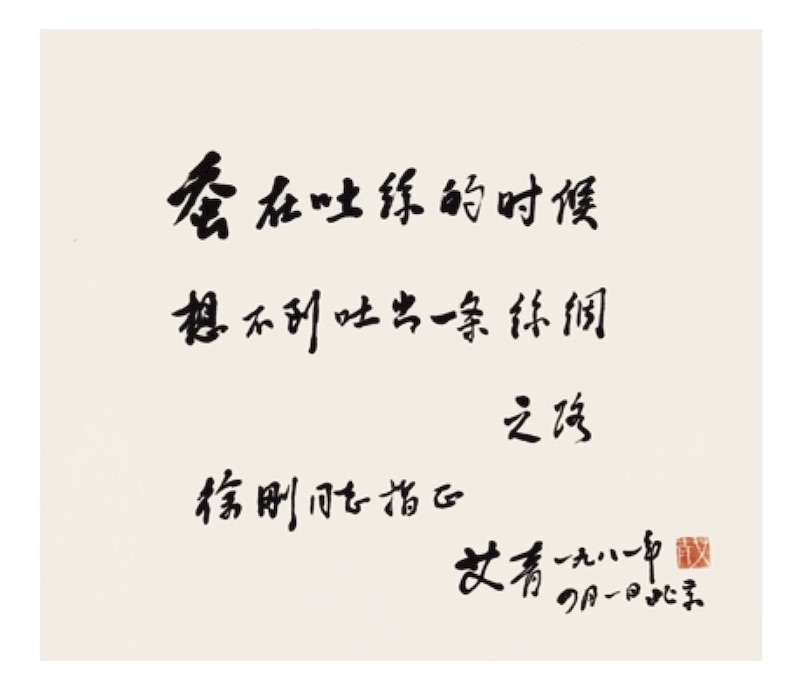 蚕在吐絲的时候
想不到吐出一条絲綢
之路
徐刚同志指正
艾青 一九八一年
四月一日北京
艾青